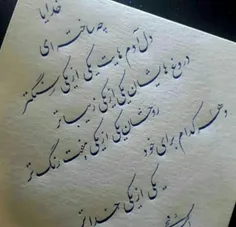 خدایا
چه ساخته ای
دل آدم هایت یکی از یکی سنگتر
دروغ هایشان یکی از یکی زیباتر
روحشان یکی از یکی هفت رنگ تر
و هر کدام برای خود
یکی از یکی خداتر